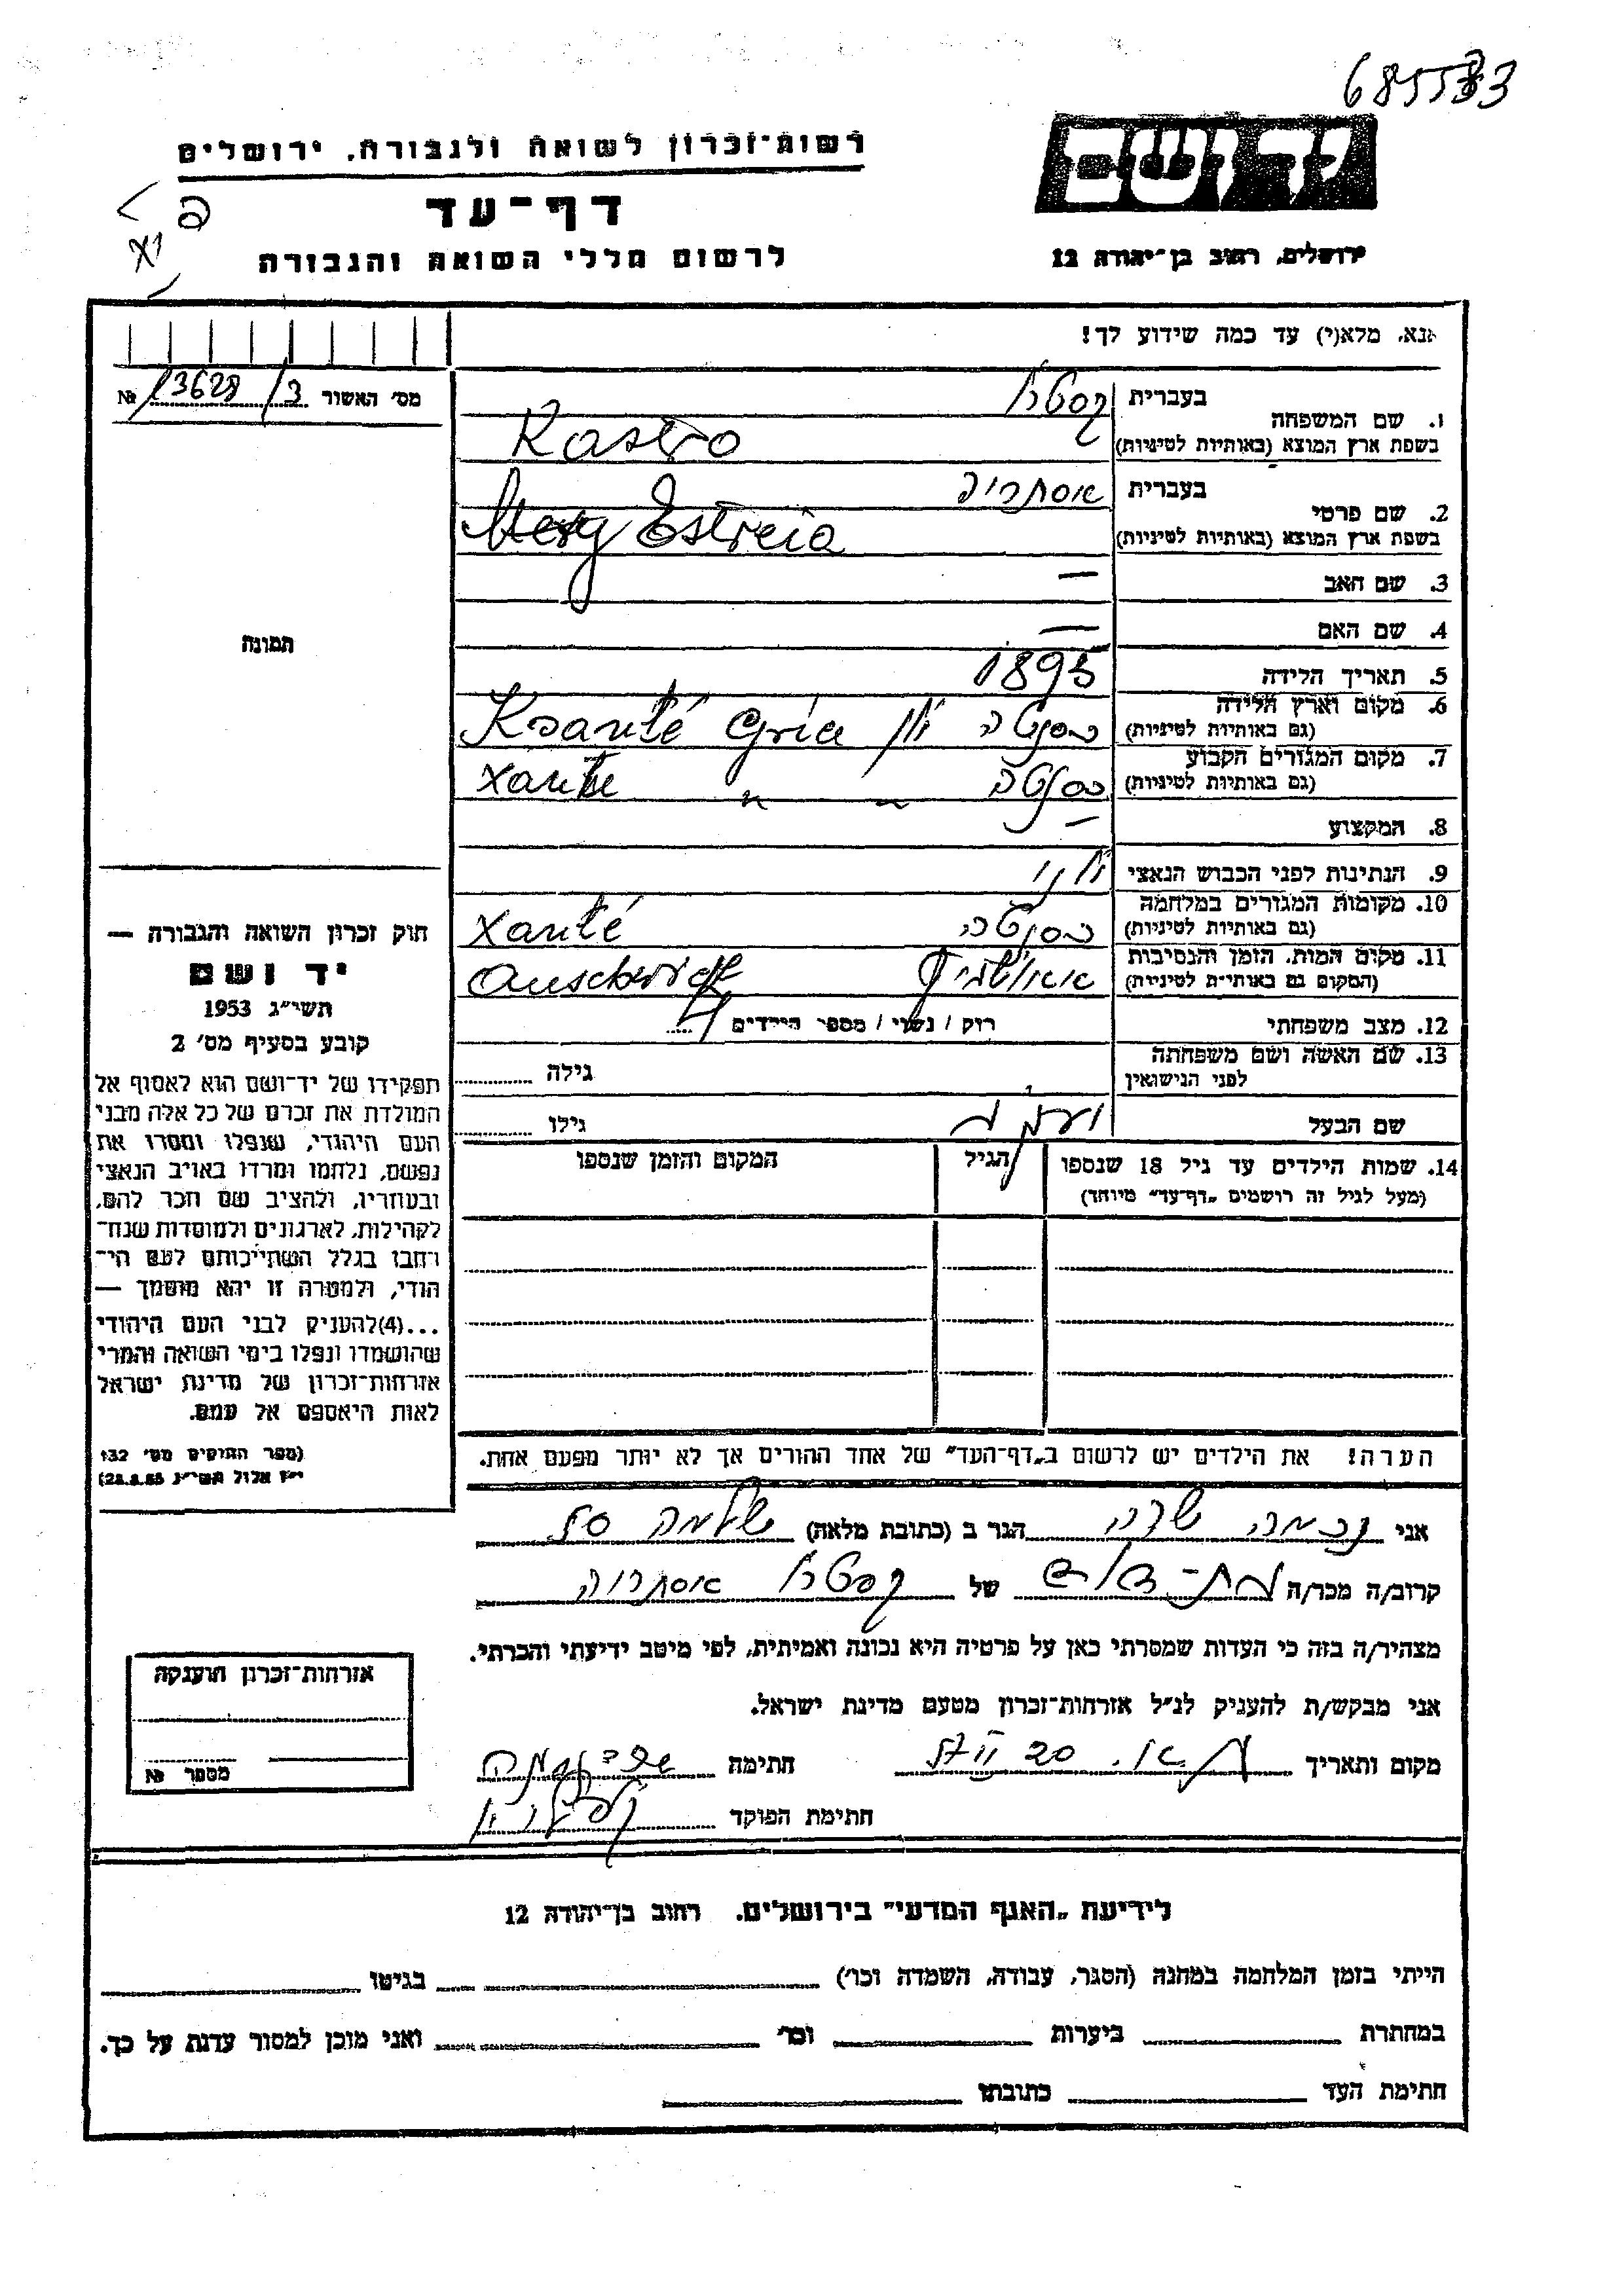 רשות־זכרון לשואה ולגבורה, ירושלים
דף־עד
לרשום חללי השואה והגבורה
יד ושם
ירושלים, רחוב בן־יהודה 12
אנא, מלא(י) עד כמה שידוע לך!
מס׳ האשור №
1. שם המשפחה
בעברית קסטרו
בשפת ארץ המוצא (באותיות לטיניות) Kastro
2. שם פרטי
בעברית אסתריה
בשפת ארץ המוצא (באותיות לטיניות) Estreia
3. שם האב —
4. שם האם —
5. תאריך הלידה 1895
6. מקום וארץ הלידה
(גם באותיות לטיניות) כסנטה יון Ksanté Gria
7. מקום המגורים הקבוע
(גם באותיות לטיניות) כסנטה Xante
8. המקצוע —
9. הנתינות לפני הכבוש הנאצי יוון
10. מקומות המגורים במלחמה
(גם באותיות לטיניות) כסנטה Xanté
11. מקום המות, הזמן והנסיבות
(המקום גם באותיות לטיניות) אאושוויץ
12. מצב משפחתי רוק / נשוי / מספר הילדים 4
13. שם האשה ושם משפחתה
לפני הנישואין גילה
שם הבעל גילו
14. שמות הילדים עד גיל 18 שנספו
(מעל לגיל זה רושמים „דף־עד״ מיוחד)
הגיל
המקום והזמן שנספו
הערה! את הילדים יש לרשום ב„דף־העד״ של אחד ההורים אך לא יותר מפעם אחת.
תמונה
חוק זכרון השואה והגבורה —
יד ושם
תשי״ג 1953
קובע בסעיף מס׳ 2
תפקידו של יד־ושם הוא לאסוף אל
המולדת את זכרם של כל אלה מבני
העם היהודי, שנפלו ומסרו את
נפשם, נלחמו ומרדו באויב הנאצי
ובעוזריו, ולהציב שם וזכר להם,
לקהילות, לארגונים ולמוסדות שנח־
רבו בגלל השתייכותם לעם הי־
הודי, ולמטרה זו יהא מוסמך —
...(4)להעניק לבני העם היהודי
שהושמדו ונפלו בימי השואה והמרי
אזרחות־זכרון של מדינת ישראל
לאות היאספם אל עמם.
(ספר החוקים מס׳ 132
אני נחמה שרה הגר ב (כתובת מלאה)
קרוב/ה מכר/ה של קסטרו אסתריה
מצהיר/ה בזה כי העדות שמסרתי כאן על פרטיה היא נכונה ואמיתית, לפי מיטב ידיעתי והכרתי.
אני מבקש/ת להעניק לנ״ל אזרחות־זכרון מטעם מדינת ישראל.
מקום ותאריך חתימה
חתימת הפוקד
אזרחות־זכרון הוענקה
מספר №
לידיעת „האגף המדעי״ בירושלים. רחוב בן־יהודה 12
הייתי בזמן המלחמה במחנה (הסגר, עבודה, השמדה וכו׳) בגיטו
במחתרת ביערות וכו׳ ואני מוכן למסור עדות על כך.
חתימת העד כתובתו